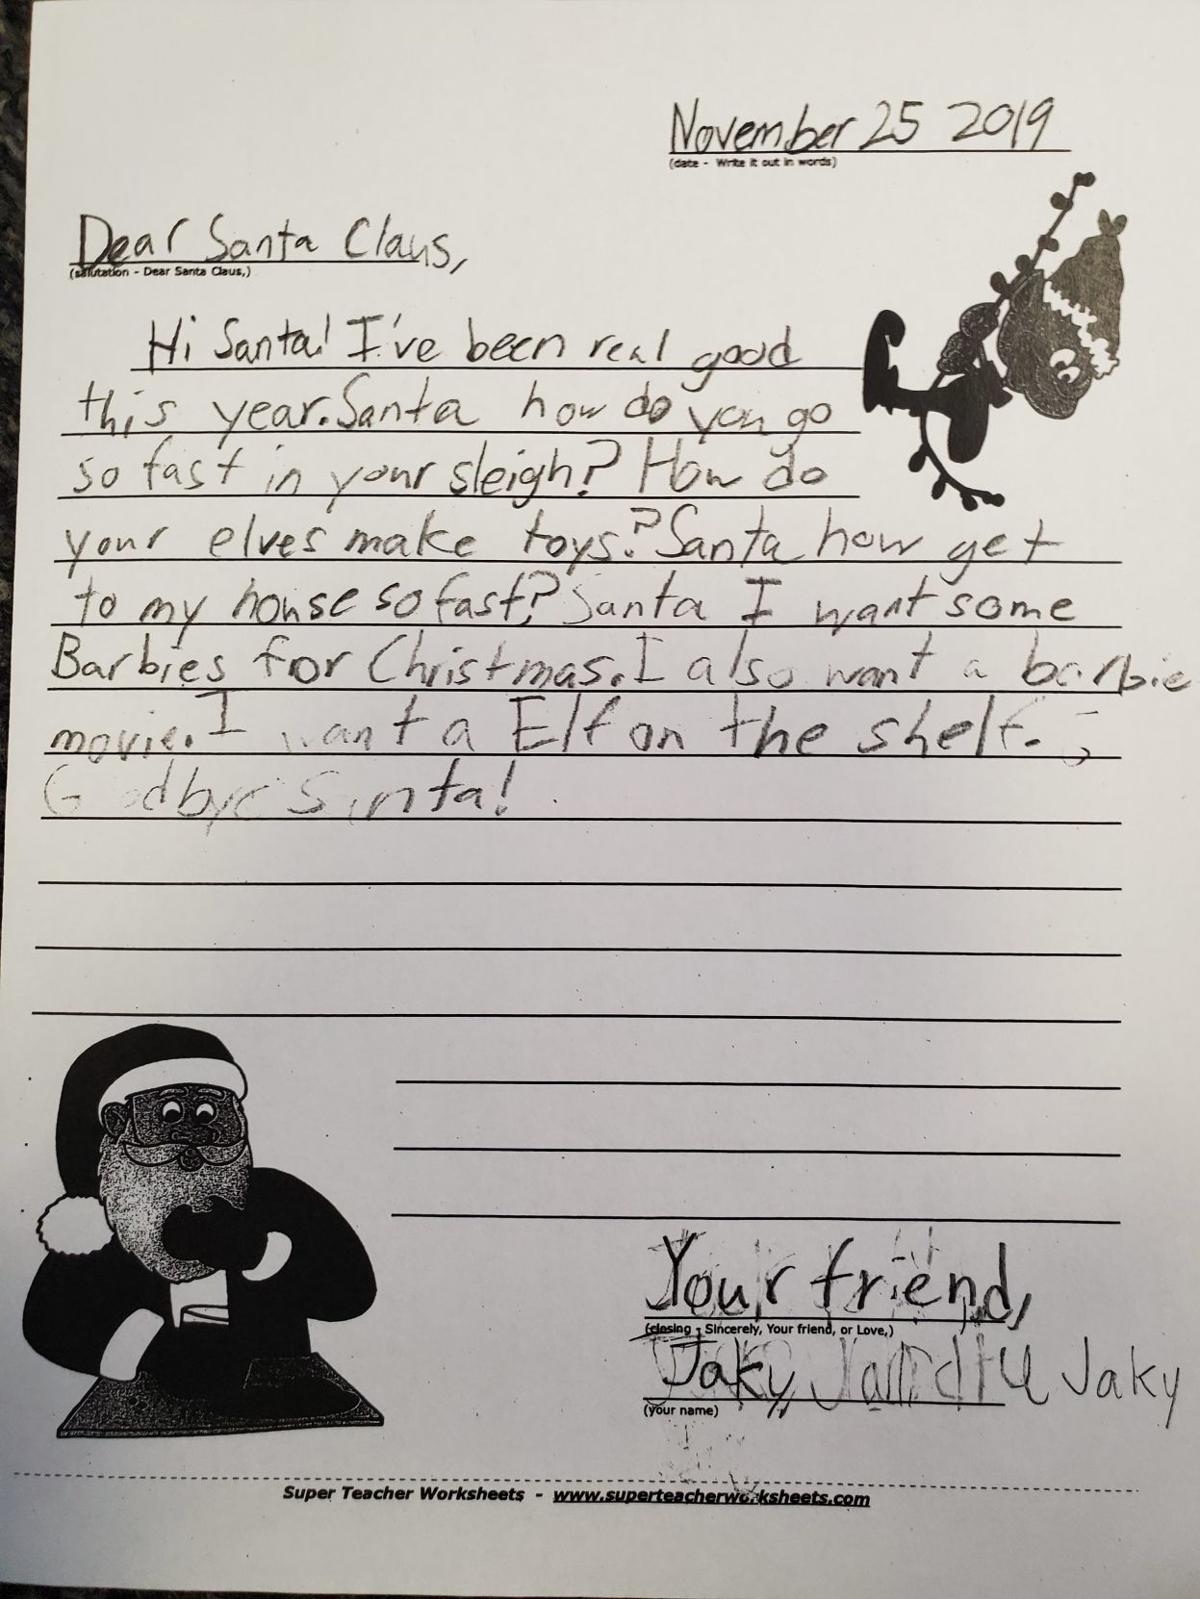 November 25 2019
(date - Write it out in words)
Dear Santa Claus,
(salutation - Dear Santa Claus,)
Hi Santa! I've been real good
this year. Santa how do you go
so fast in your sleigh? How do
your elves make toys? Santa how get
to my house so fast? Santa I want some
Barbies for Christmas. I also want a barbie
movie. I want a Elf on the shelf.
Goodbye Santa!
Your friend,
(closing - Sincerely, Your friend, or Love,)
Jaky, Jaky
(your name)
Super Teacher Worksheets - www.superteacherworksheets.com